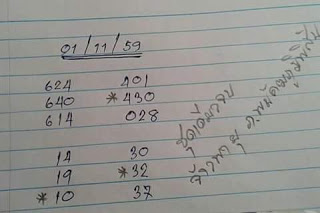 01/11/59
624 401
640 *430
614 028
14 30
19 *32
*10 37
ชุดเดียวจบ